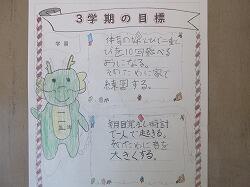 3学期の目標
学習
体育のなわとびで二重と
びを10回とべる
ようになる。
そのために家で
練習する。
毎日目覚まし時計
で一人で起きる。
そのために音を
大きくする。